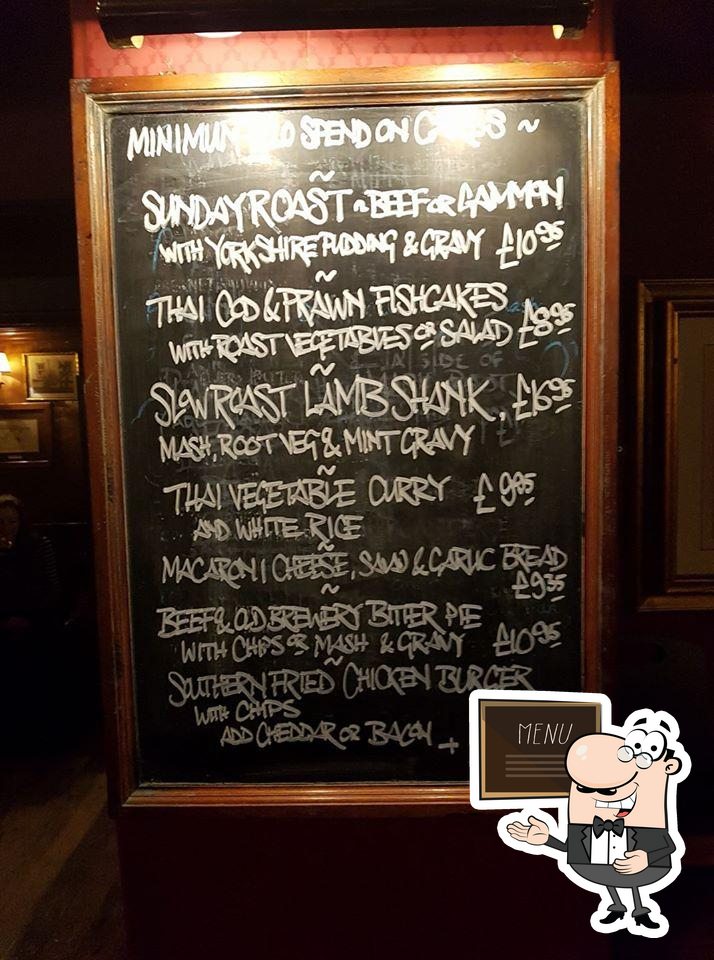 MINIMUM SPEND ON ~
~
SUNDAY ROAST ~ BEEF OR GAMMON
WITH YORKSHIRE PUDDING & GRAVY £10.95
~
THAI COD & PRAWN FISHCAKES
WITH ROAST VEGETABLES OR SALAD £8.95
~
SLOW ROAST LAMB SHANK, £16.95
MASH, ROOT VEG & MINT GRAVY
~
THAI VEGETABLE CURRY £9.95
AND WHITE RICE
~
MACARONI CHEESE, SALAD & GARLIC BREAD
£9.35
~
BEEF & OLD BREWERY BITTER PIE
WITH CHIPS OR MASH & GRAVY £10.95
~
SOUTHERN FRIED CHICKEN BURGER
WITH CHIPS
ADD CHEDDAR OR BACON +
MENU